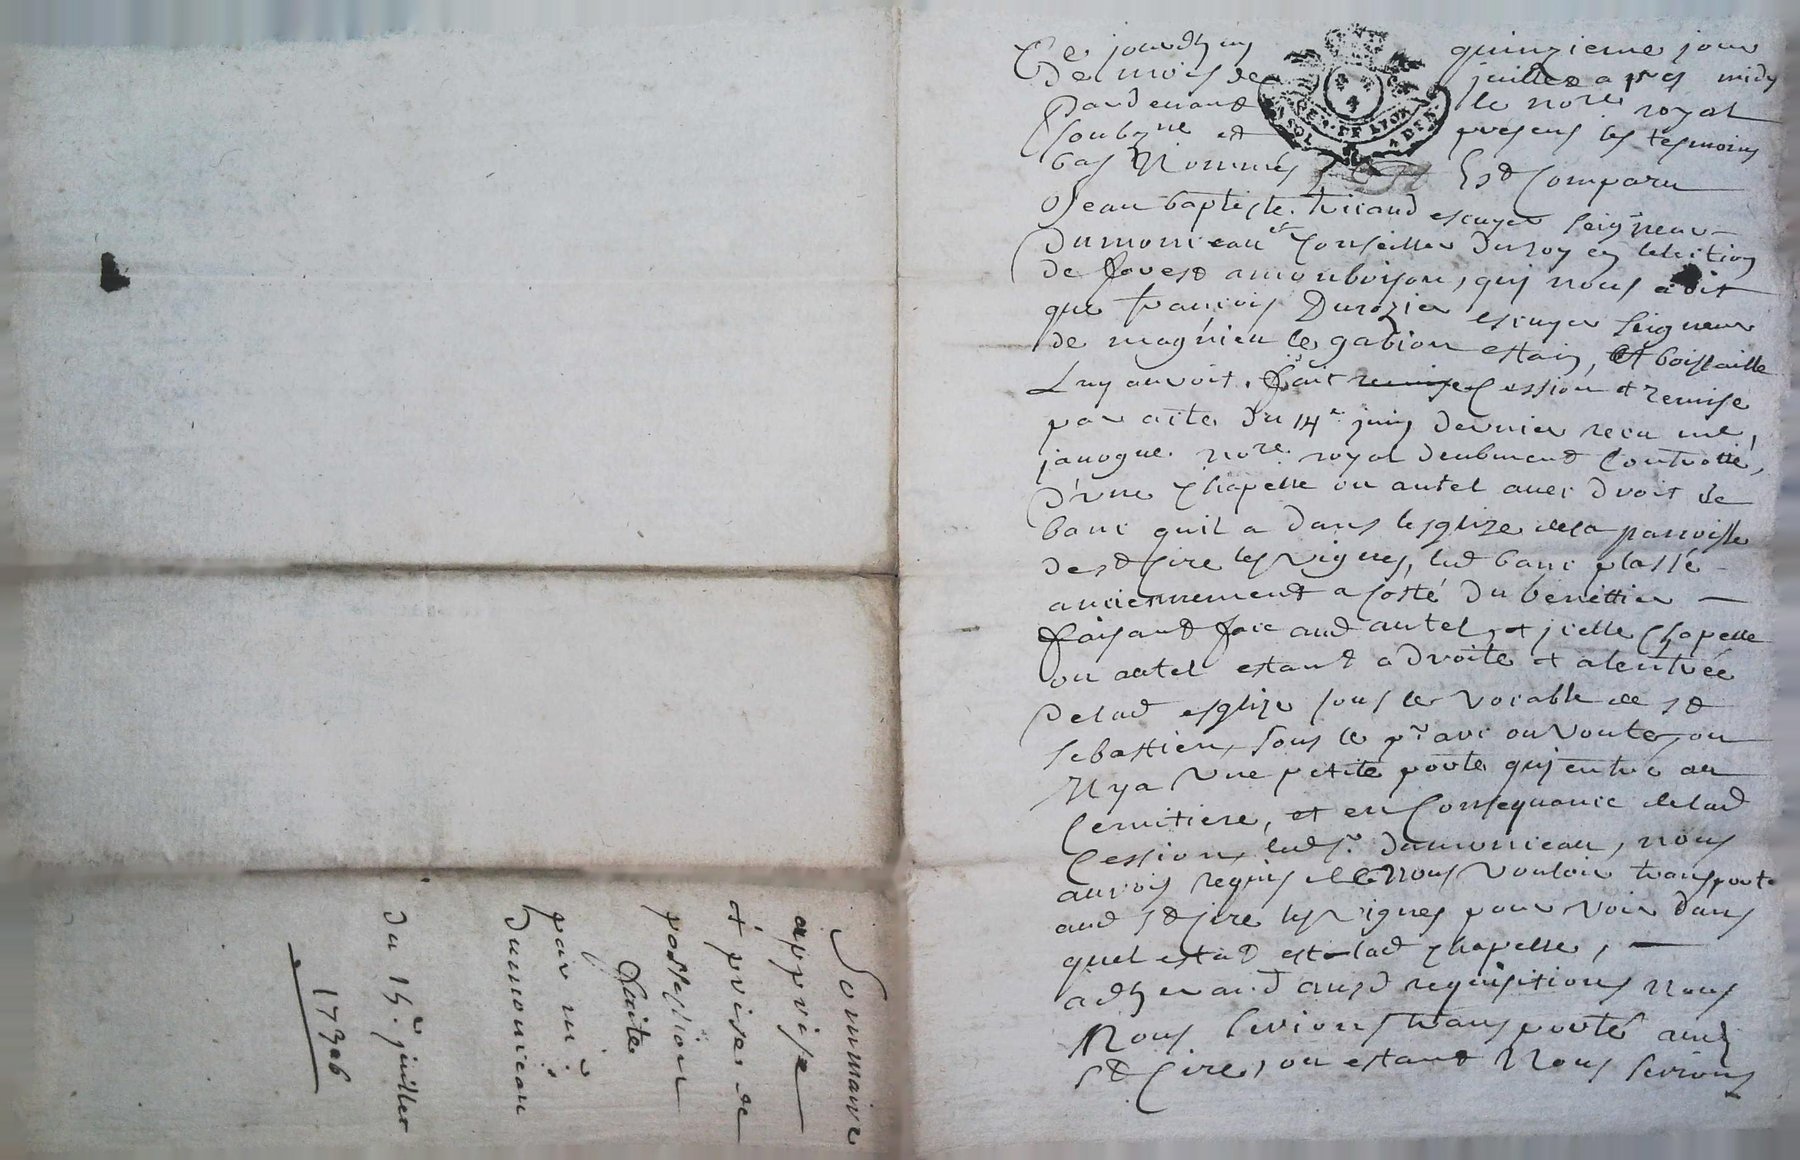 Ce jourdhuy quinzieme jour
du mois de juillet apres midy
Pardevant le nore royal
soubzne et presens les tesmoins
bas Nommés Est Comparu
Jean baptiste escuyer seigneur
dumonceau et Conseiller du roy en lelection
de forest a monbrison, qui nous a dit
que francois Durozier escuyer seigneur
de magnieu le gabion estain, et boissaille
Luy auroit fait remise Cession et remise
par acte du 14e juin dernier receu me
janogue nore royal deubment Controllé,
d'une Chapelle ou autel avec droit de
banc quil a dans lesglize de la parroisse
de st Cire les vignes, led banc plassé
anciennement a Costé du benettier
faisant face aud autel, et jcelle Chapelle
ou autel estant a droite et a lentrée
de lad esglize sous le vocable de st
sebastien, sous le pr arc ou voute, ou
Il y a une petite porte qui entre au
Cemitiere, et en Consequance de lad
Cession led sr. dumonceau, nous
auroit requis de Nous vouloir transporte
aud st Cire les vignes pour voir dans
quel estat est lad chapelle,
adherand ausd requisitions nous
Nous serions transporté aud
st Cire, ou estant Nous serions
Sommaire
apprise
et prise de
possession
faite
par mr.
dumonceau
du 15e. juillet
1706